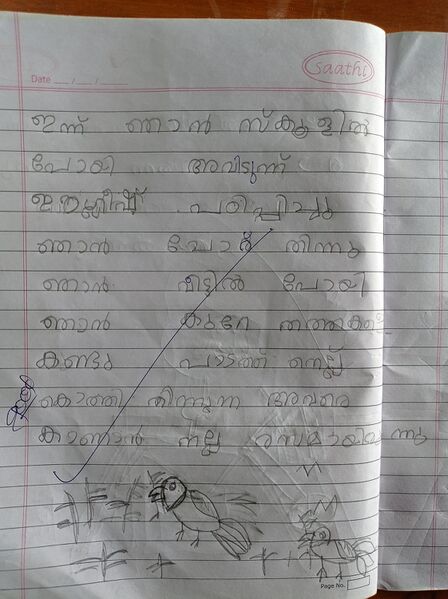 saathi
Date
ഇന്ന് ഞാൻ സ്കൂളിൽ
പോയി അവിടുന്ന്
ഇംഗ്ലീഷ് പഠിപ്പിച്ചു
ഞാൻ ചോർ തിന്നു
ഞാൻ വീട്ടിൽ പോയി
ഞാൻ കുറേ തത്തകളെ
കണ്ടു പാടത്ത് നെല്ല്
കൊത്തി തിന്നുന്ന അവരെ
കാണാൻ നല്ല രസമായിരുന്നു
Page No.